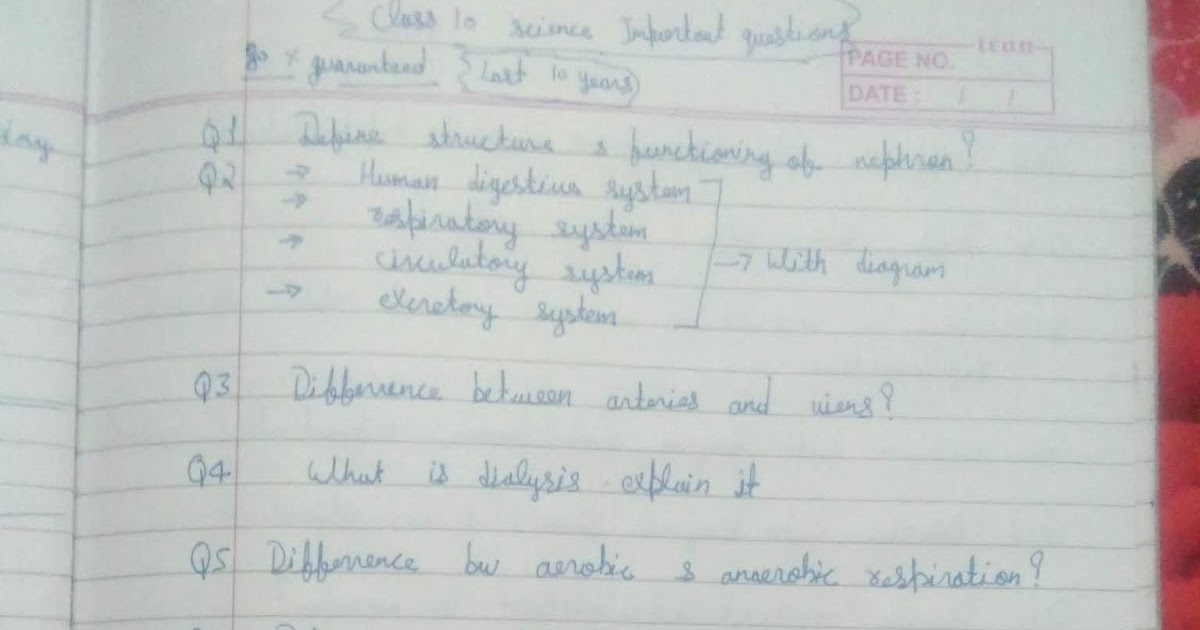 Class 10 science Important questions
80 % guaranteed { Last 10 years)
PAGE NO.
DATE : / /
Q1 Define structure & functioning of nephron?
Q2 → Human digestive system
→ respiratory system
→ circulatory system → With diagram
→ excretory system
Q3 Difference between arteries and viens?
Q4 What is dialysis explain it
Q5 Difference bw aerobic & anaerobic respiration?